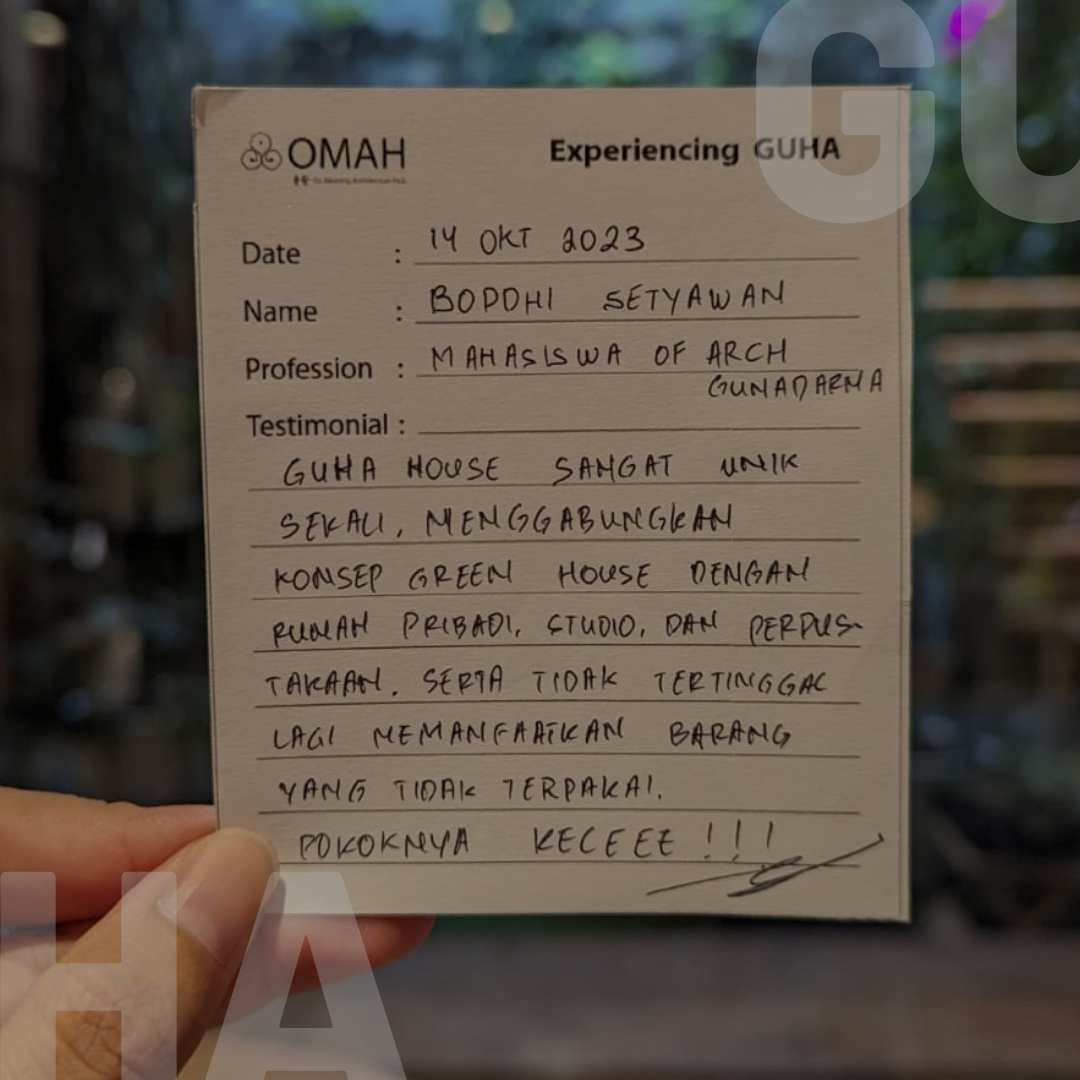 GU
OMAH
Experiencing GUHA
Date : 14 OKT 2023
Name : BODDHI SETYAWAN
Profession : MAHASISWA OF ARCH
GUNADARMA
Testimonial :
GUHA HOUSE SANGAT UNIK
SEKALI, MENGGABUNGKAN
KONSEP GREEN HOUSE DENGAN
RUMAH PRIBADI, STUDIO, DAN PERPUS-
TAKAAN. SERTA TIDAK TERTINGGAL
LAGI MEMANFAATKAN BARANG
YANG TIDAK TERPAKAI.
POKOKNYA KECEEE !!!
HA